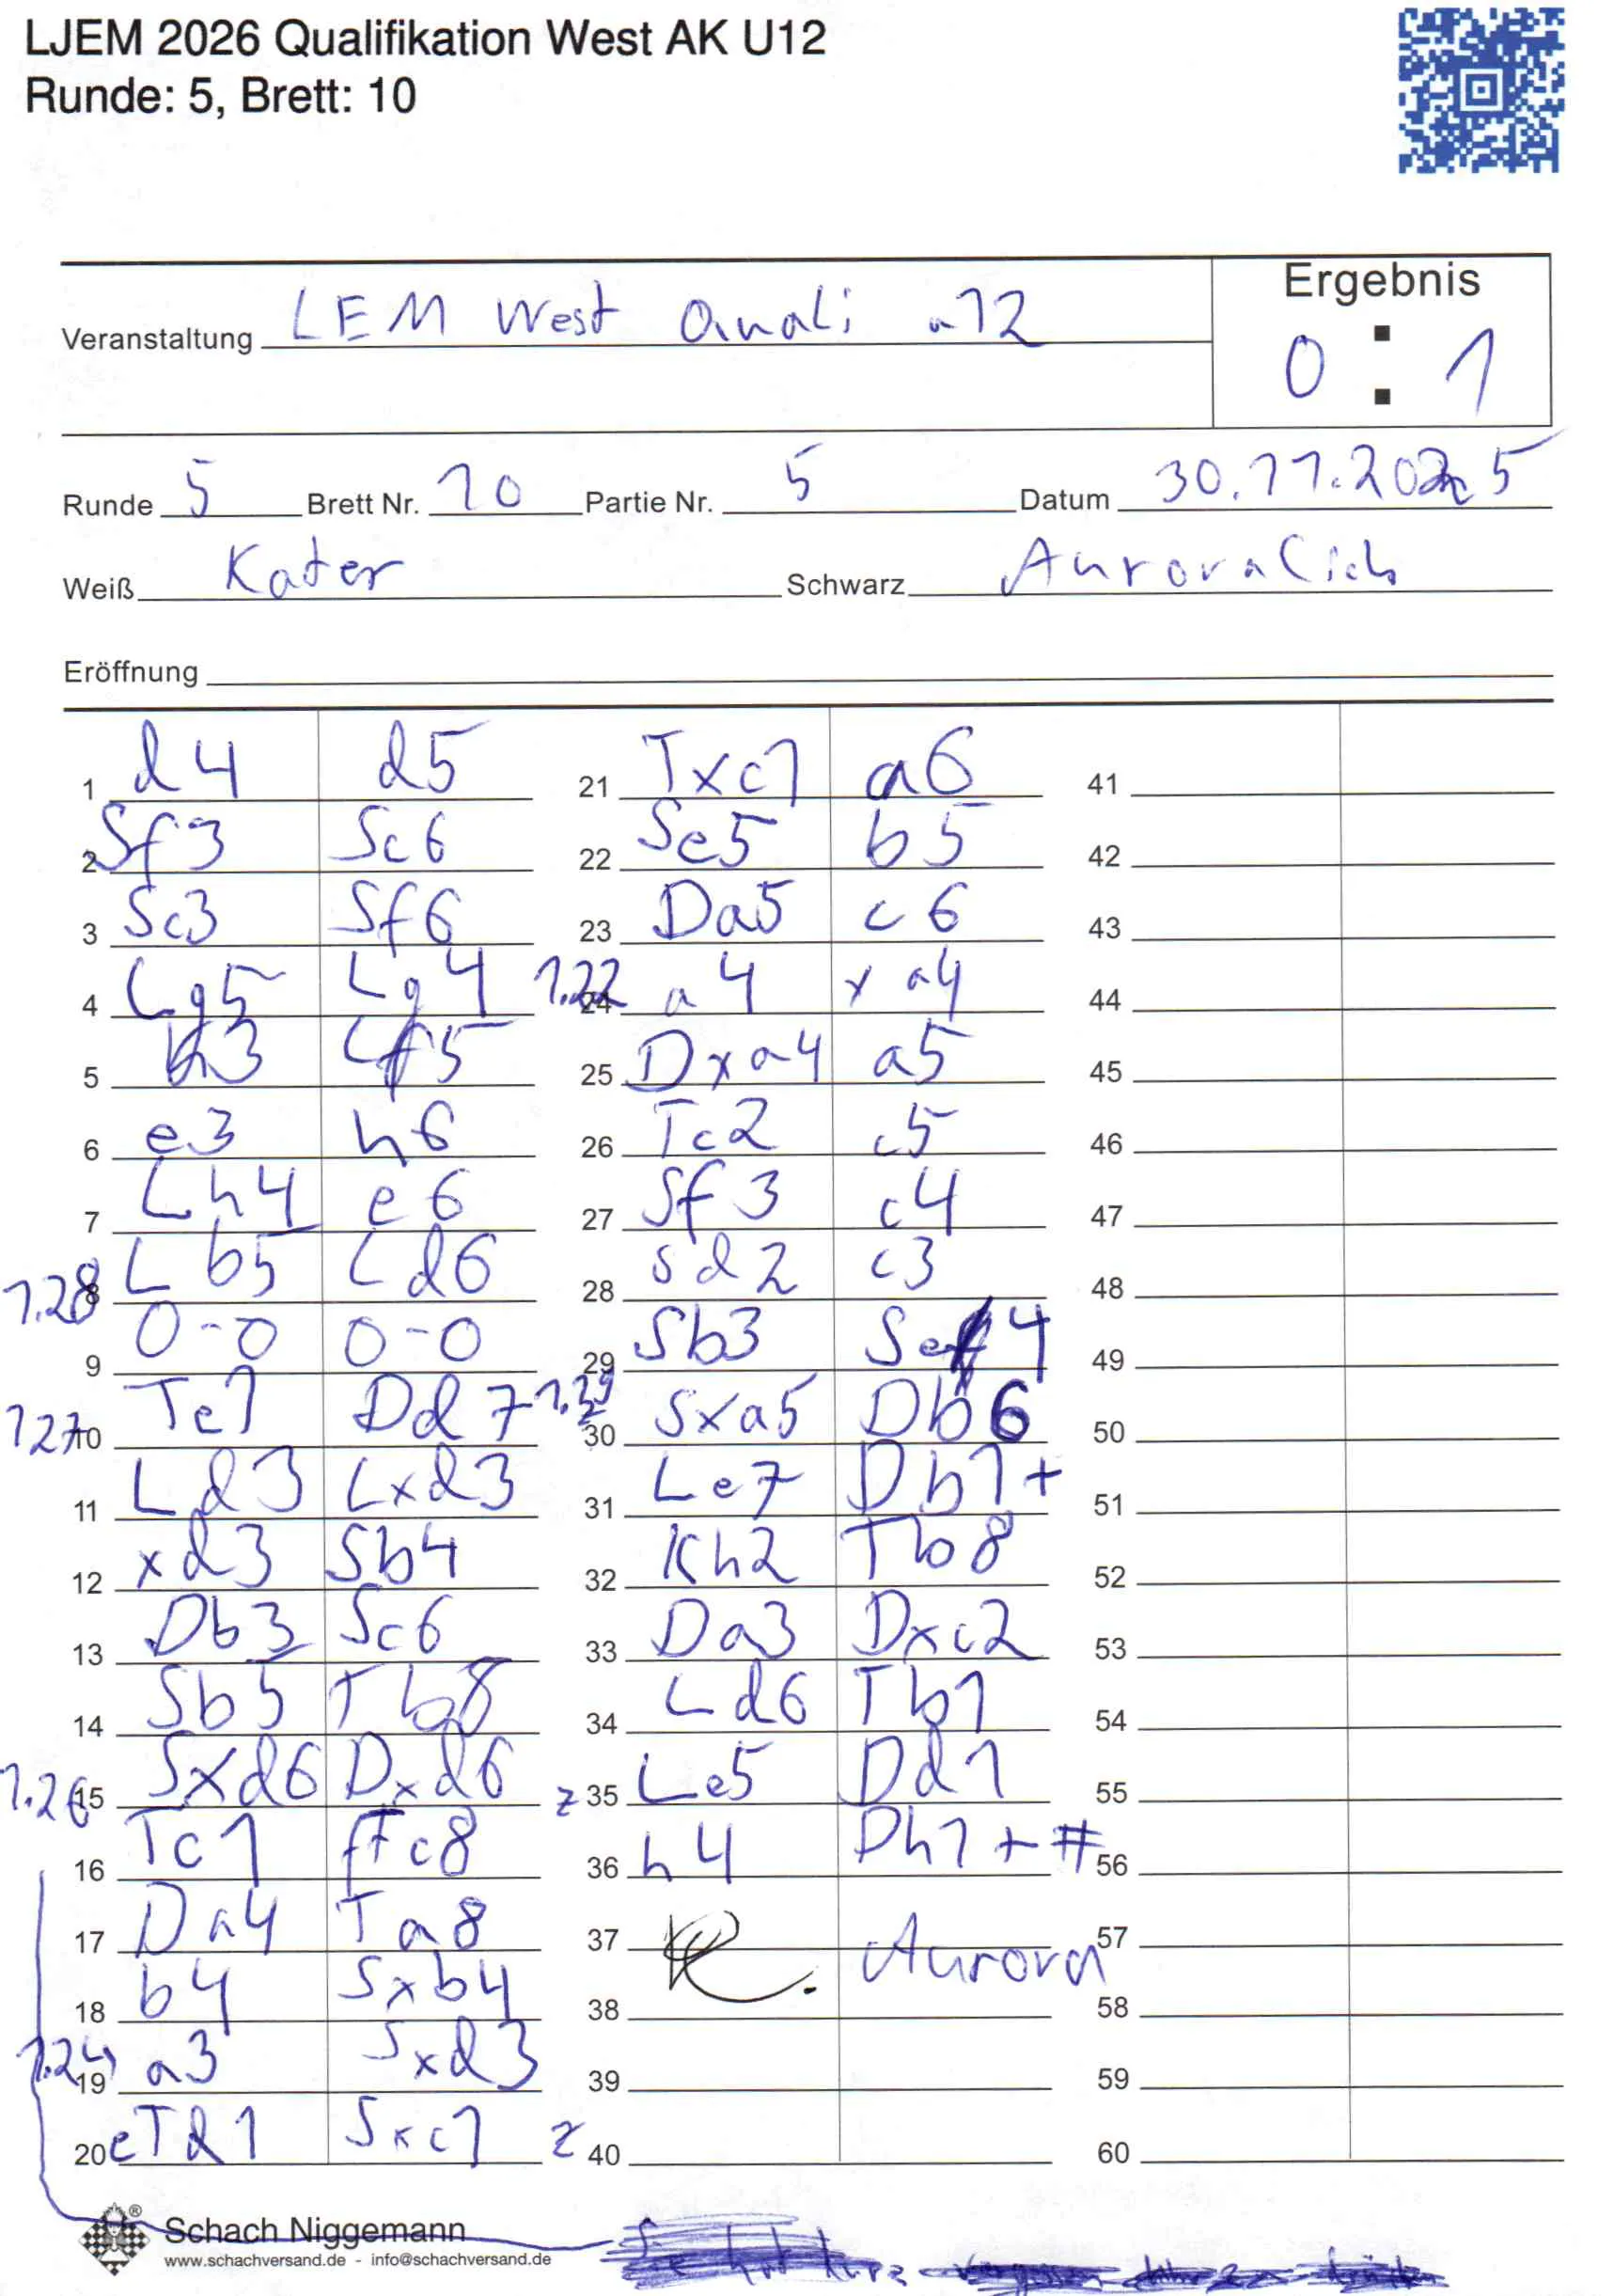 LJEM 2026 Qualifikation West AK U12
Runde: 5, Brett: 10
Ergebnis
Veranstaltung LEM West Quali u12
0 : 1
Runde 5 Brett Nr. 10 Partie Nr. 5 Datum 30.11.2025
Weiß Kater Schwarz Aurora Cich
Eröffnung
1 d4 d5
2 Sf3 Sc6
3 Sc3 Sf6
4 Lg5 Lg4
5 h3 Lf5
6 e3 h6
7 Lh4 e6
1.28 8 Lb5 Ld6
9 0-0 0-0
1.27 10 Te1 Dd7
11 Ld3 Lxd3
12 xd3 Sb4
13 Db3 Sc6
14 Sb5 Tb8
1.26 15 Sxd6 Dxd6
16 Tc1 fTc8
17 Da4 Ta8
18 b4 Sxb4
1.24 19 a3 Sxd3
20 eTd1 Sxc1
21 Txc1 a6
22 Se5 b5
23 Da5 c6
1.22 24 a4 xa4
25 Dxa4 a5
26 Tc2 c5
27 Sf3 c4
28 Sd2 c3
29 Sb3 Se4
30 Sxa5 Db6
31 Le7 Db1+
32 Kh2 Tb8
33 Da3 Dxc2
34 Ld6 Tb1
z 35 Le5 Dd1
36 h4 Dh1+#
37 Aurora
38
39
z 40
41
42
43
44
45
46
47
48
49
50
51
52
53
54
55
56
57
58
59
60
Schach Niggemann
www.schachversand.de - info@schachversand.de